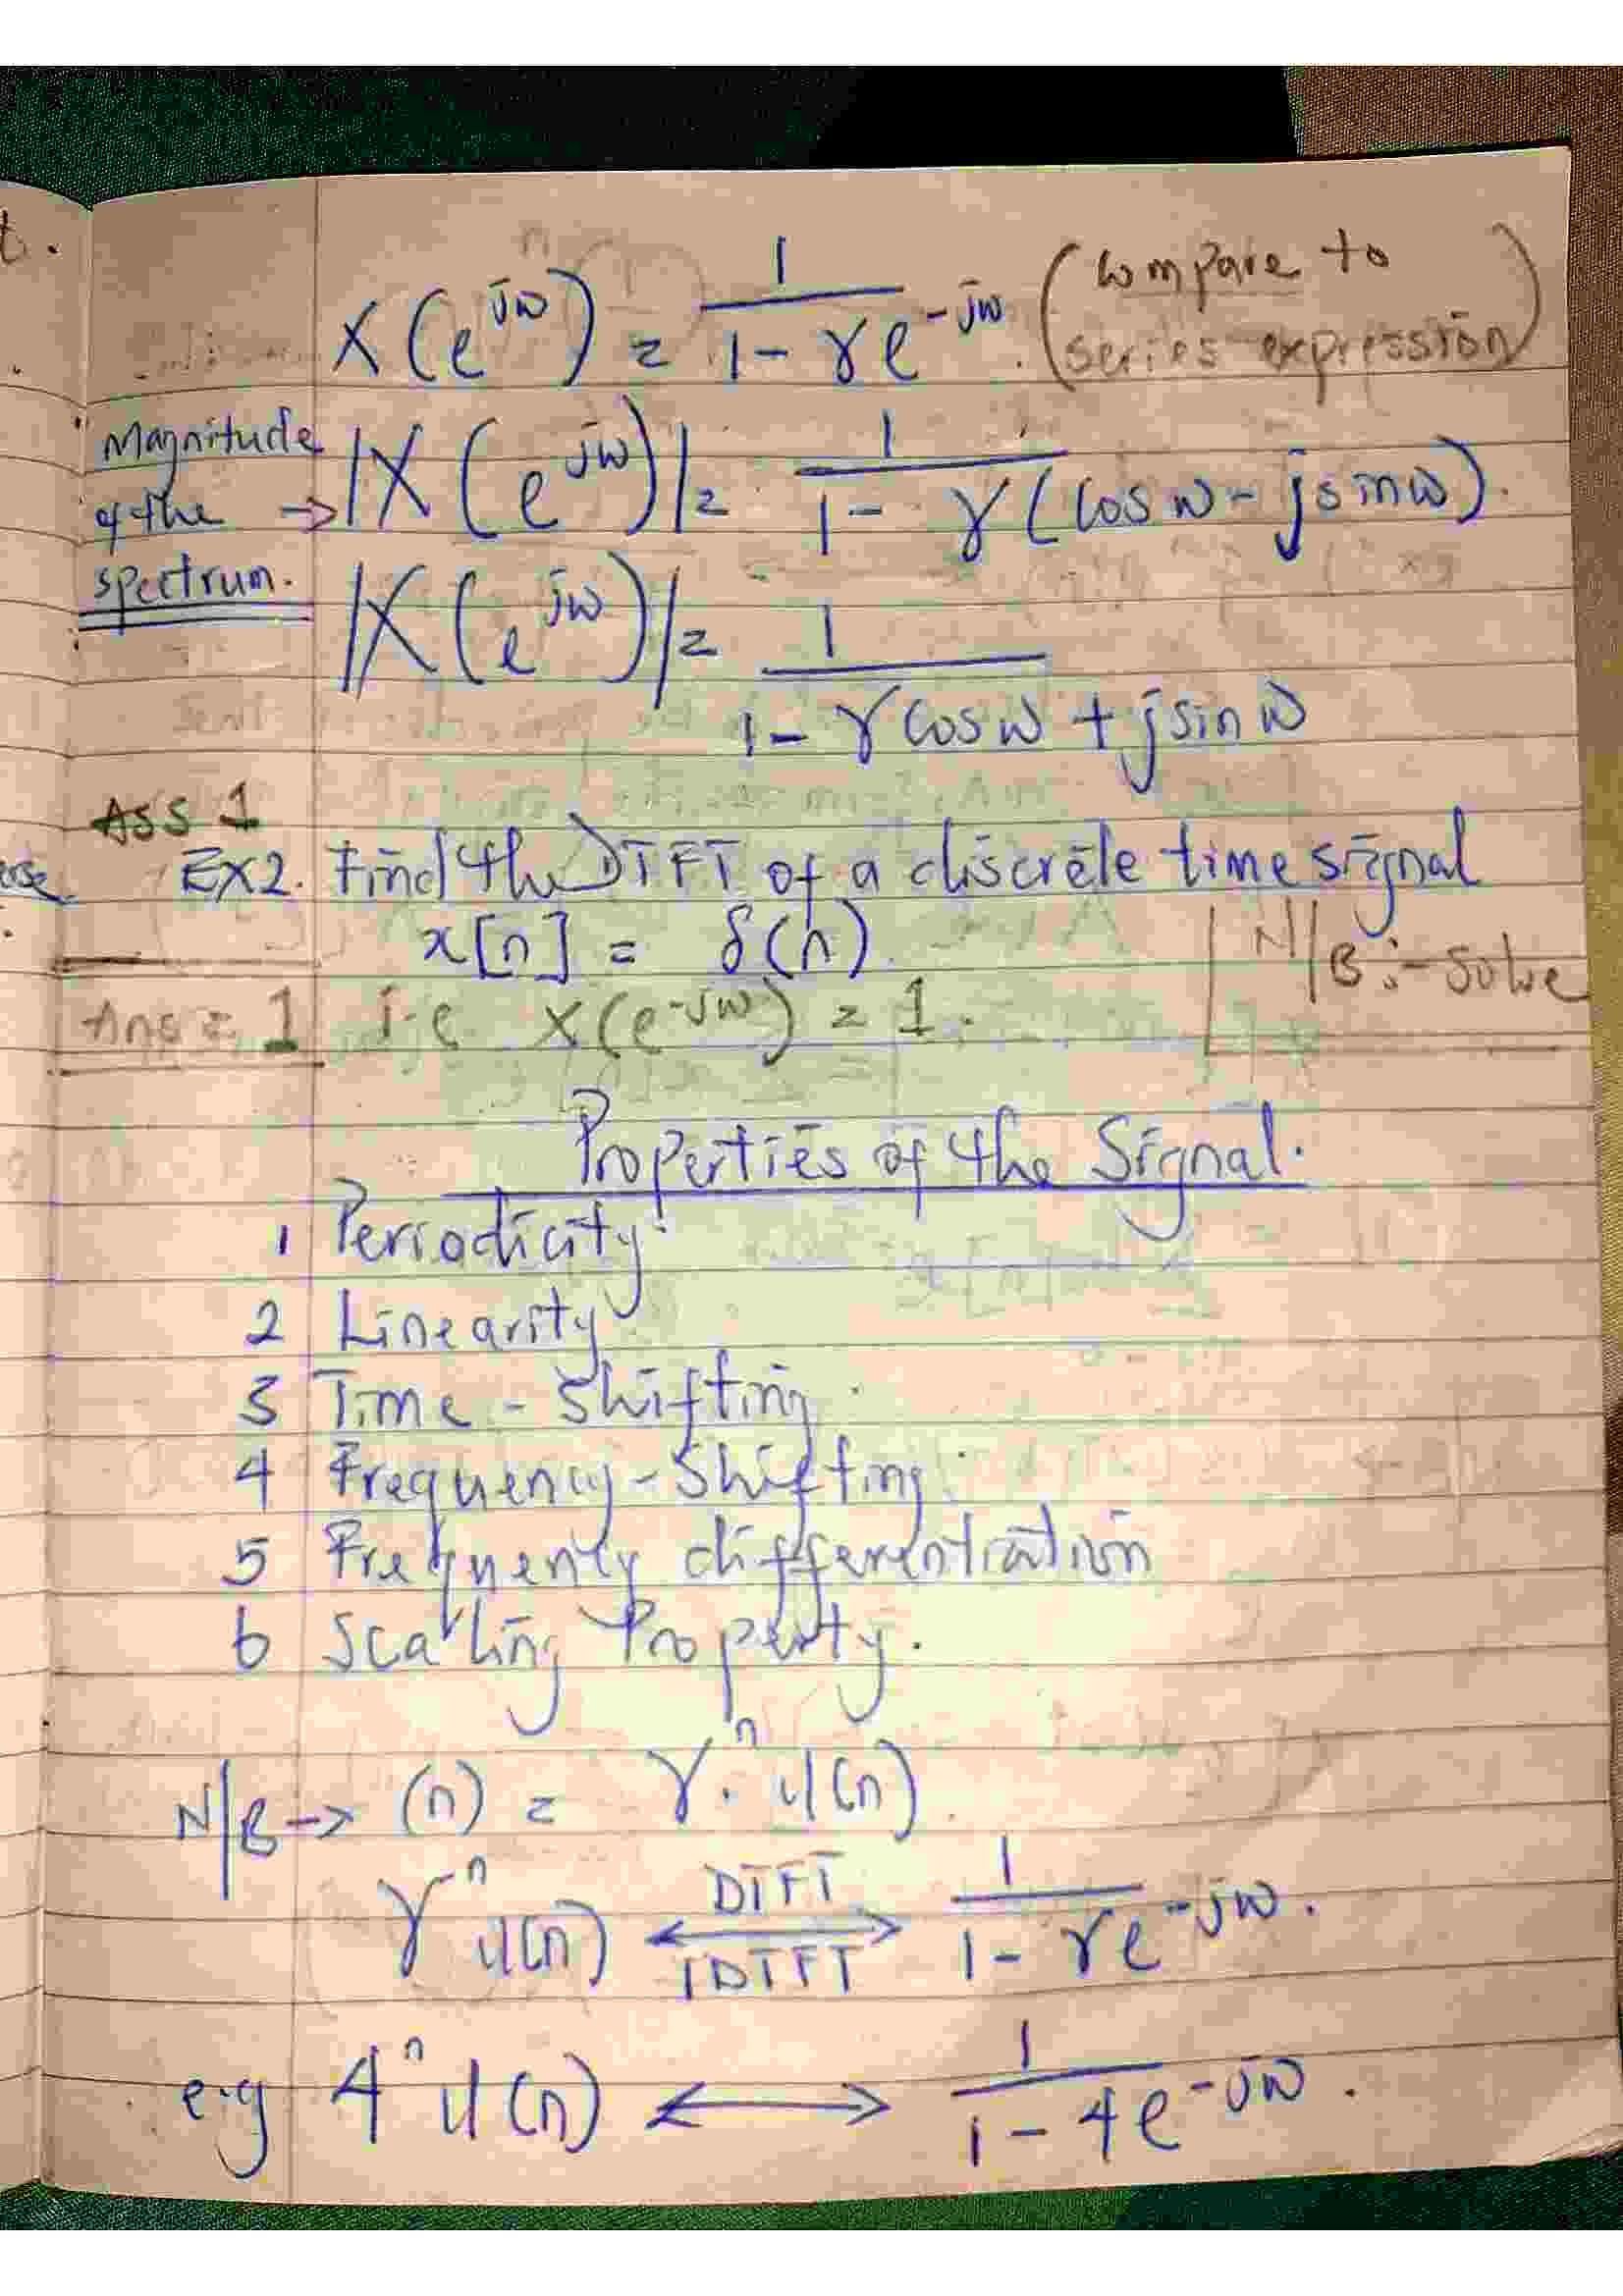 t.
X(e^jw) = 1/(1 - γe^-jw). (Compare to series expression)
Magnitude of the spectrum. → |X(e^jw)| = 1/(1 - γ(cos w - jsinw)).
|X(e^jw)| = 1/(1 - γcosw + jsinw)
Ass 1
Ex2. Find the DTFT of a discrete time signal
x[n] = δ(n) N/B:- Solve
Ans = 1 i.e X(e^-jw) = 1.
Properties of the Signal.
1 Periodicity
2 Linearity
3 Time - Shifting.
4 Frequency - Shifting.
5 Frequency differentiation
6 Scaling Property.
N/B → (n) = γ^n. u(n).
γ^n u(n) ⟷ DTFT IDTFT 1/(1 - γe^-jw).
e.g 4^n u(n) ⟷ 1/(1 - 4e^-jw).